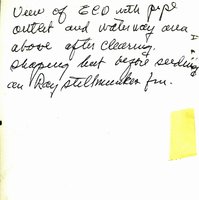 View of ECD with pipe
outlet and waterway area
above after clearing.
shaping but before seeding
on Ray Stillmunkes fm.